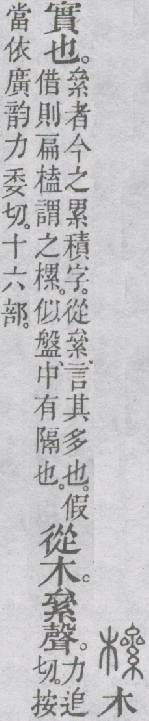 木
實也。絫者今之累積字。從絫、言其多也。假
借則扁榼謂之樏。似盤、中有隔也。從木。絫聲。力追
切。按
當依廣韵力委切。十六部。